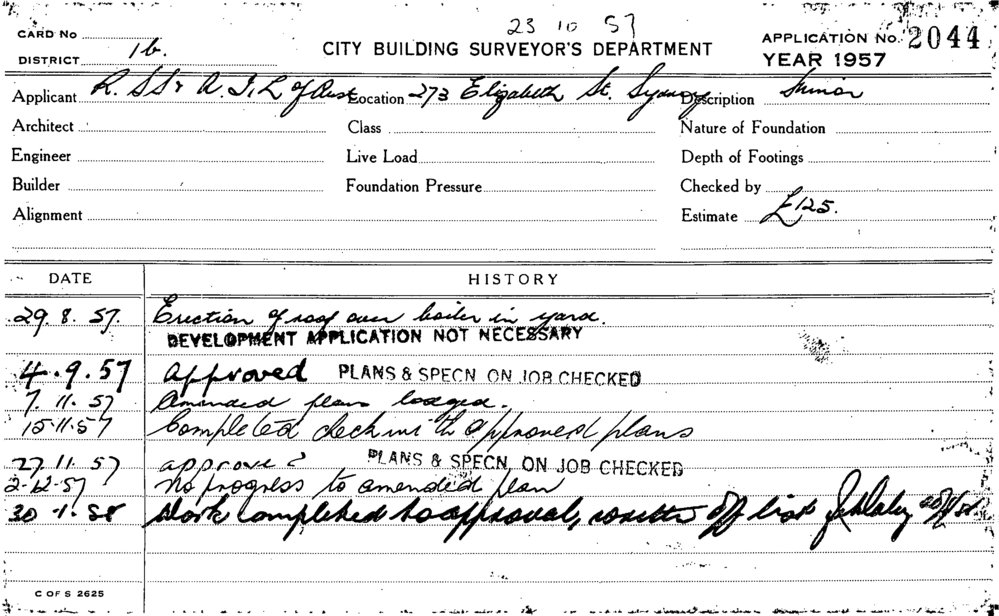 23 10 57
CARD No
DISTRICT 1b.
CITY BUILDING SURVEYOR'S DEPARTMENT
APPLICATION No. 2044
YEAR 1957
Applicant R. S S & A. I. L of Aust Location 273 Elizabeth St. Sydney Description Minor
Architect Class Nature of Foundation
Engineer Live Load Depth of Footings
Builder Foundation Pressure Checked by
Alignment Estimate £125.
DATE HISTORY
29. 8. 57. Erection of roof over boiler in yard.
DEVELOPMENT APPLICATION NOT NECESSARY
4.9.57 Approved PLANS & SPECN ON JOB CHECKED
7. 11. 57 Amended plans lodged.
15.11.57 Completed deck with approved plans
27. 11. 57 approved PLANS & SPECN. ON JOB CHECKED
2-12-57 No progress to amended plan
30 -1. 58 Work completed to approval, write off list
C OF S 2625